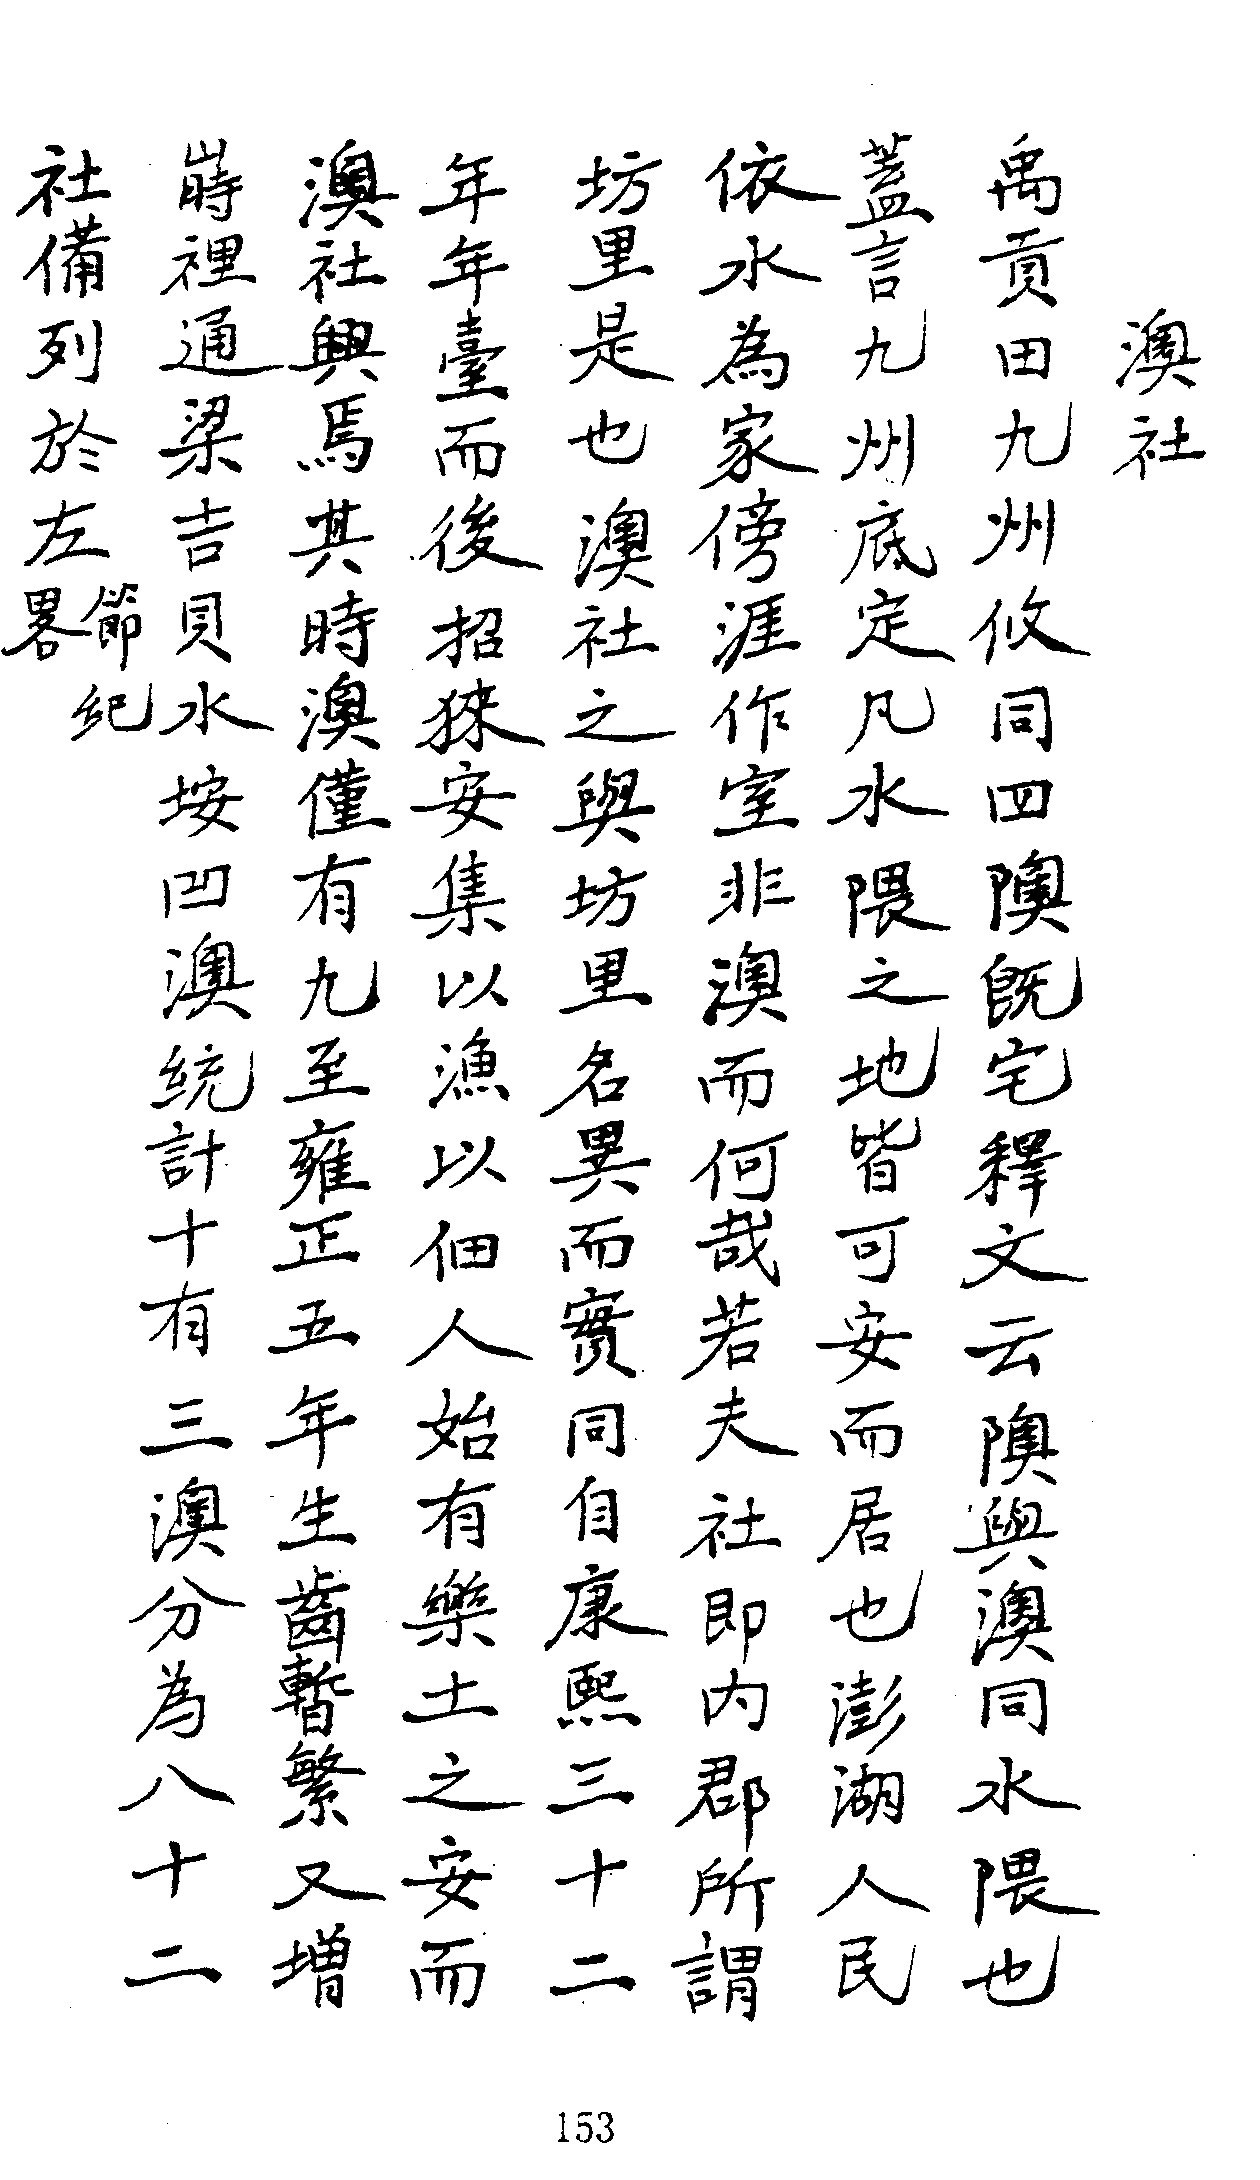 澳社
禹貢田九州攸同四隩既宅釋文云隩與澳同水隈也
蓋言九州底定凡水隈之地皆可安而居也澎湖人民
依水為家傍涯作室非澳而何哉若夫社即內郡所謂
坊里是也澳社之與坊里名異而實同自康熙三十二
年年臺而後招徠安集以漁以佃人始有樂土之安而
澳社興焉其時澳僅有九至雍正五年生齒暫繁又增
嵵裡通梁吉貝水垵凹澳統計十有三澳分為八十二
社備列於左節紀畧
153